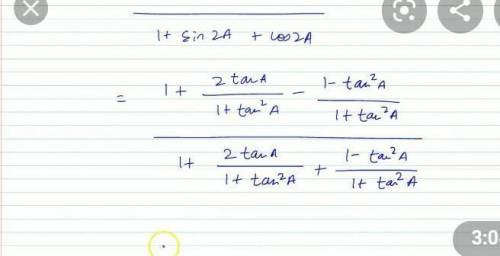 1 + sin 2A + cos 2A
= 1 + 2 tan A / 1 + tan²A − 1 − tan²A / 1 + tan²A
1 + 2 tan A / 1 + tan²A + 1 − tan²A / 1 + tan²A